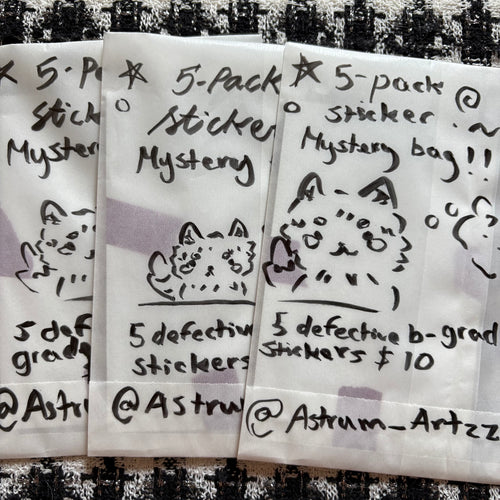 5-Pa
sticke
Myster
5 def
grad
@Astru
5-Pack
sticker
Mystery
5 defectiv
stickers
@Astru
5-pack
sticker
Mystery bag!!
5 defective b-grad
stickers $10
@Astrum_Artzz